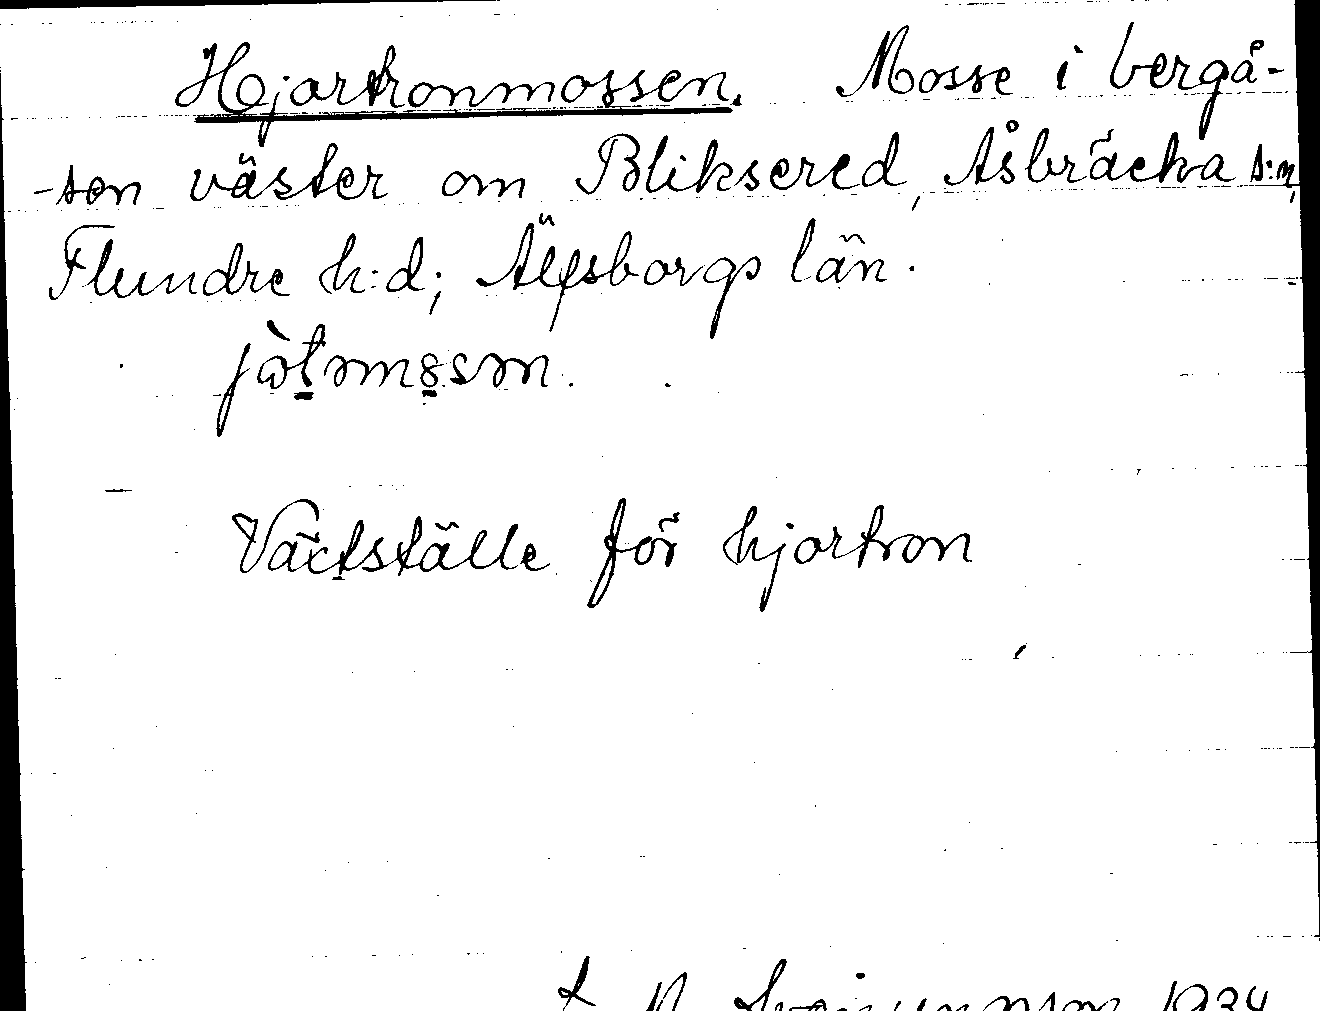 Hjortronmossen. Mosse i bergå-
-sen väster om Bliksered, Åsbräcka s:n,
Flundre h:d; Älfsborgs län.
Växtställe för hjortron
1934